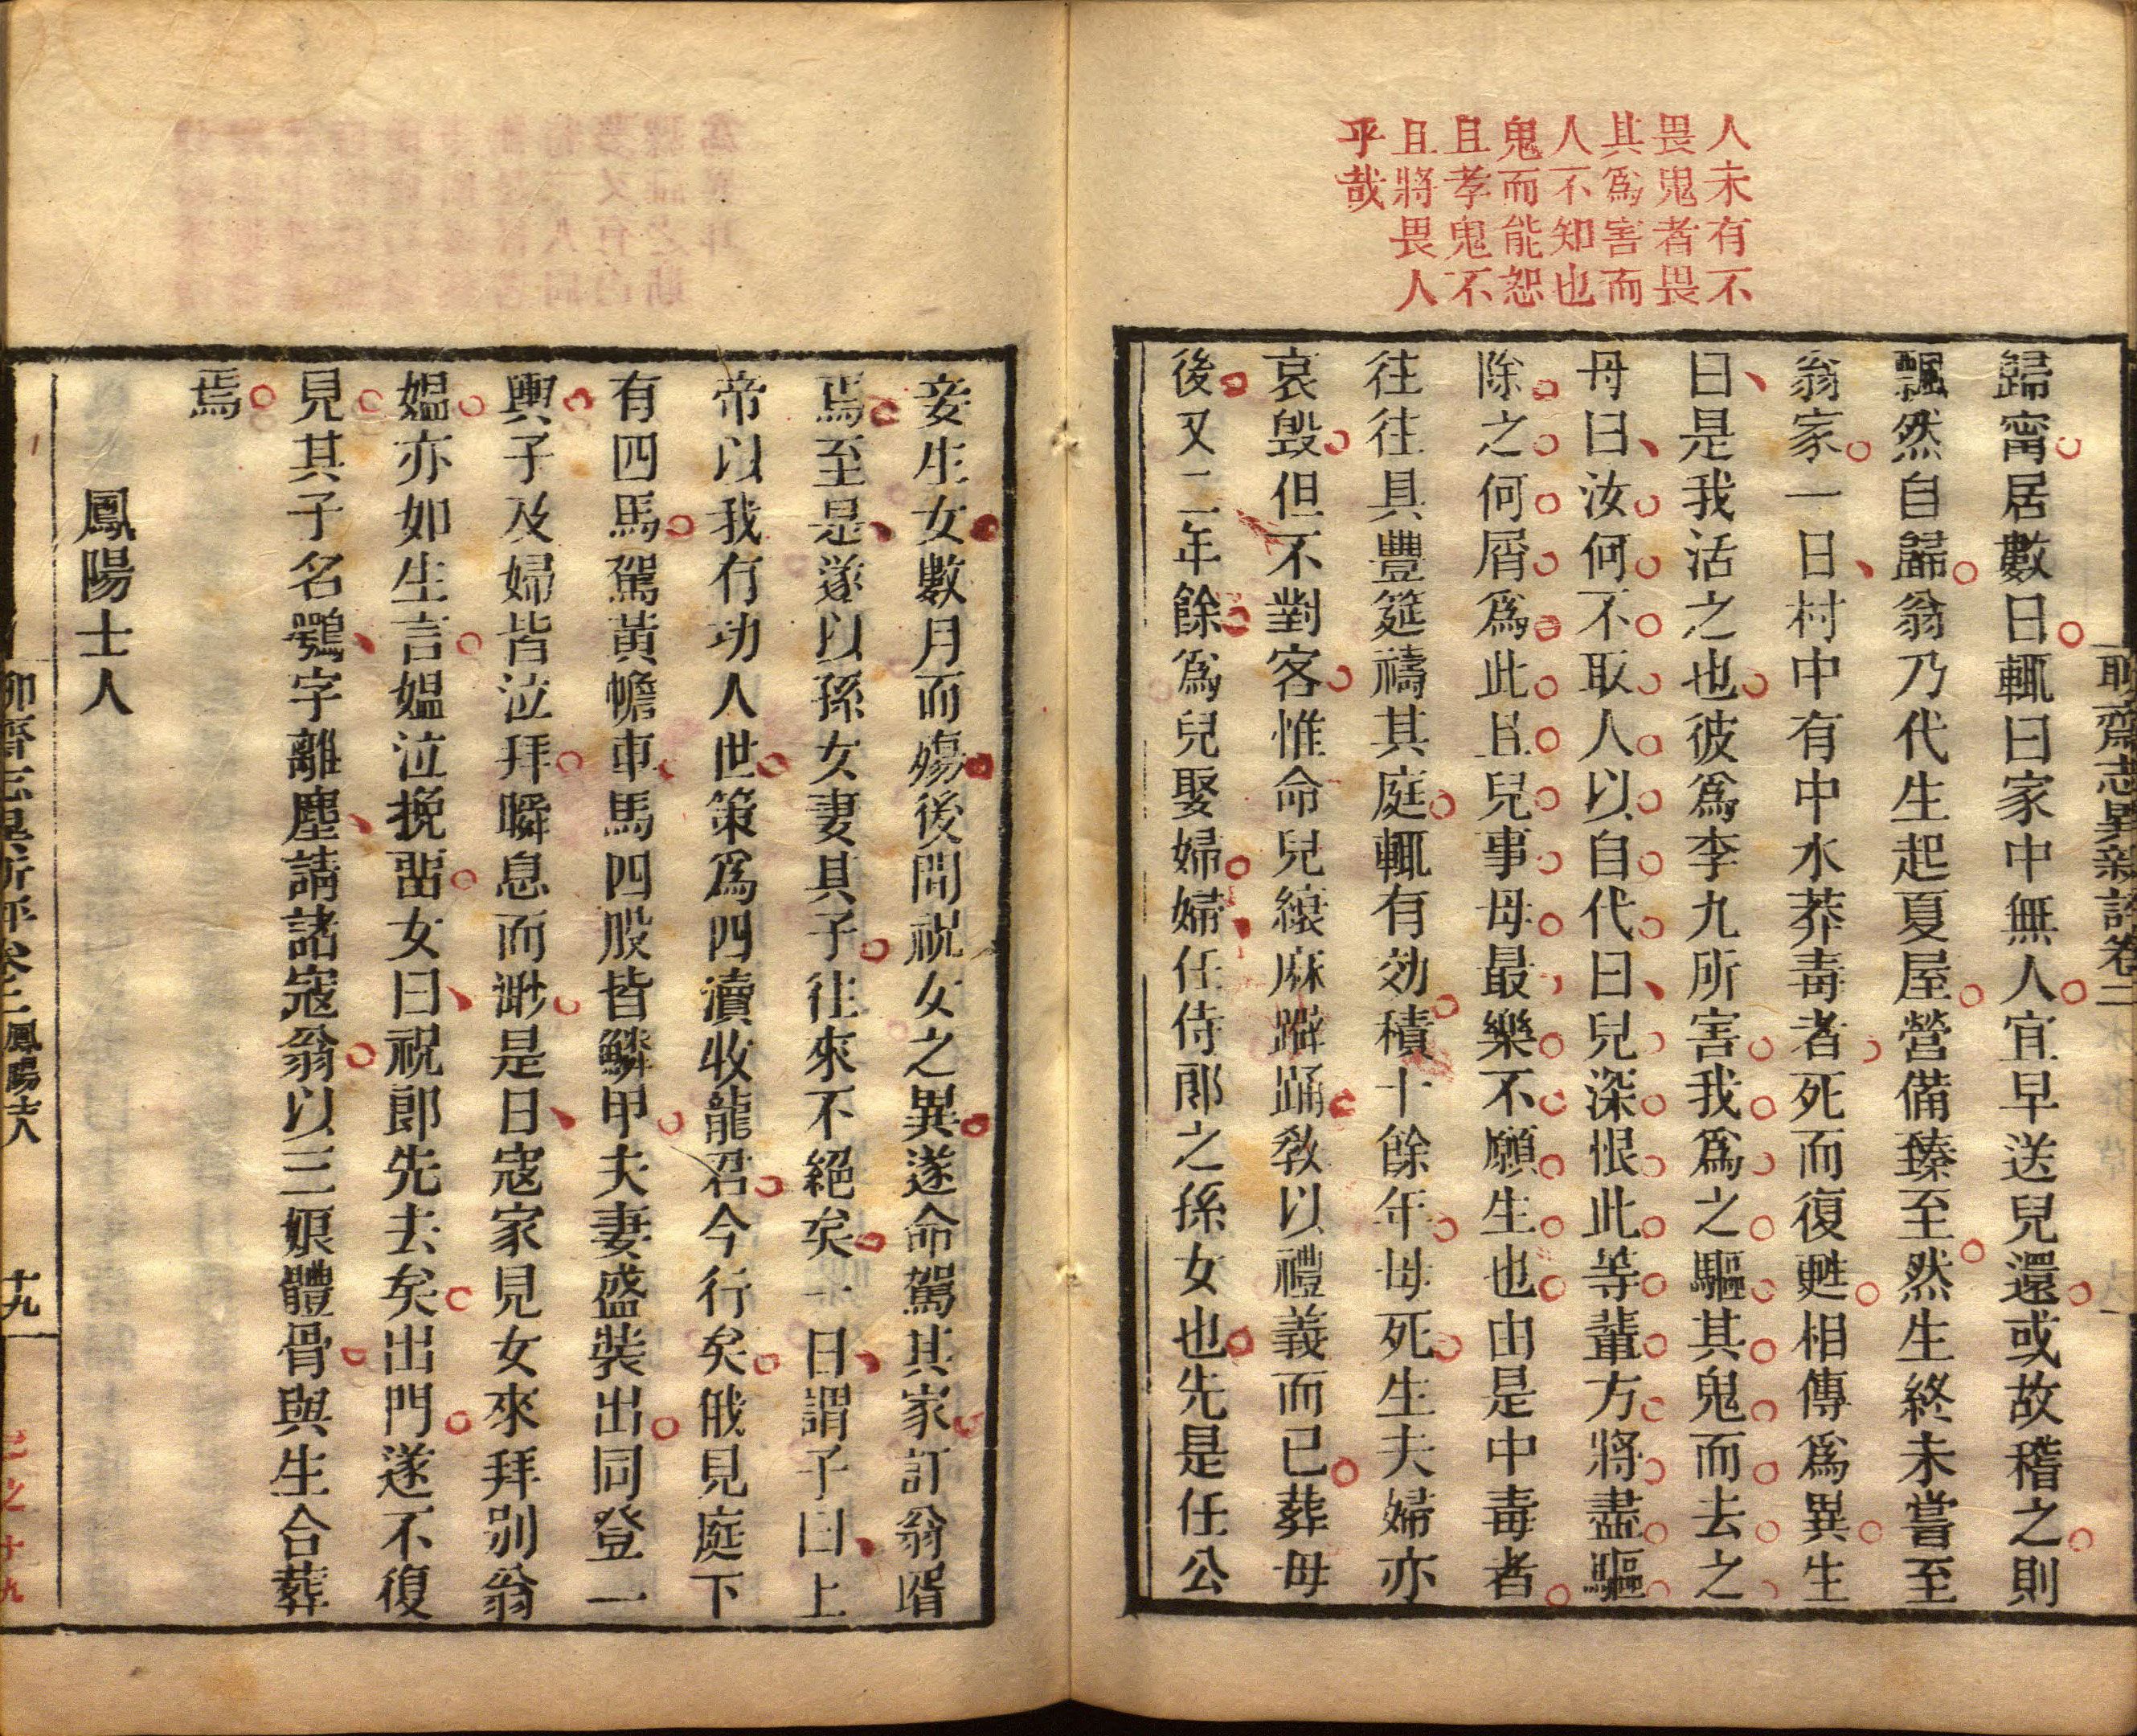 聊齋志異新評卷二
人未有不
畏鬼者畏
其爲害而
人不知也
鬼而能恕
且孝鬼不
且將畏人
乎哉
歸甯居數日輒曰家中無人宜早送兒還或故稽之則
飄然自歸翁乃代生起夏屋營備臻至然生終未嘗至
翁家一日村中有中水莽毒者死而復甦相傳爲異生
曰是我活之也彼爲李九所害我爲之驅其鬼而去之
母曰汝何不取人以自代曰兒深恨此等輩方將盡驅
除之何屑爲此且兒事母最樂不願生也由是中毒者
往往具豐筵禱其庭輒有効積十餘年母死生夫婦亦
哀毀但不對客惟命兒縗麻躃踊教以禮義而已葬母
後又二年餘爲兒娶婦婦任侍郎之孫女也先是任公
妾生女數月而殤後聞祝女之異遂命駕其家訂翁壻
焉至是遂以孫女妻其子往來不絕矣一日謂子曰上
帝以我有功人世策爲四瀆收龍君今行矣俄見庭下
有四馬駕黃幨車馬四股皆鱗甲夫妻盛裝出同登一
輿子及婦皆泣拜瞬息而渺是日寇家見女來拜別翁
媼亦如生言媼泣挽畱女曰祝郎先去矣出門遂不復
見其子名鶚字離塵請諸寇翁以三娘體骨與生合葬
焉
鳳陽士人
聊齋志異新評卷二鳳陽士人 十九
二之十九